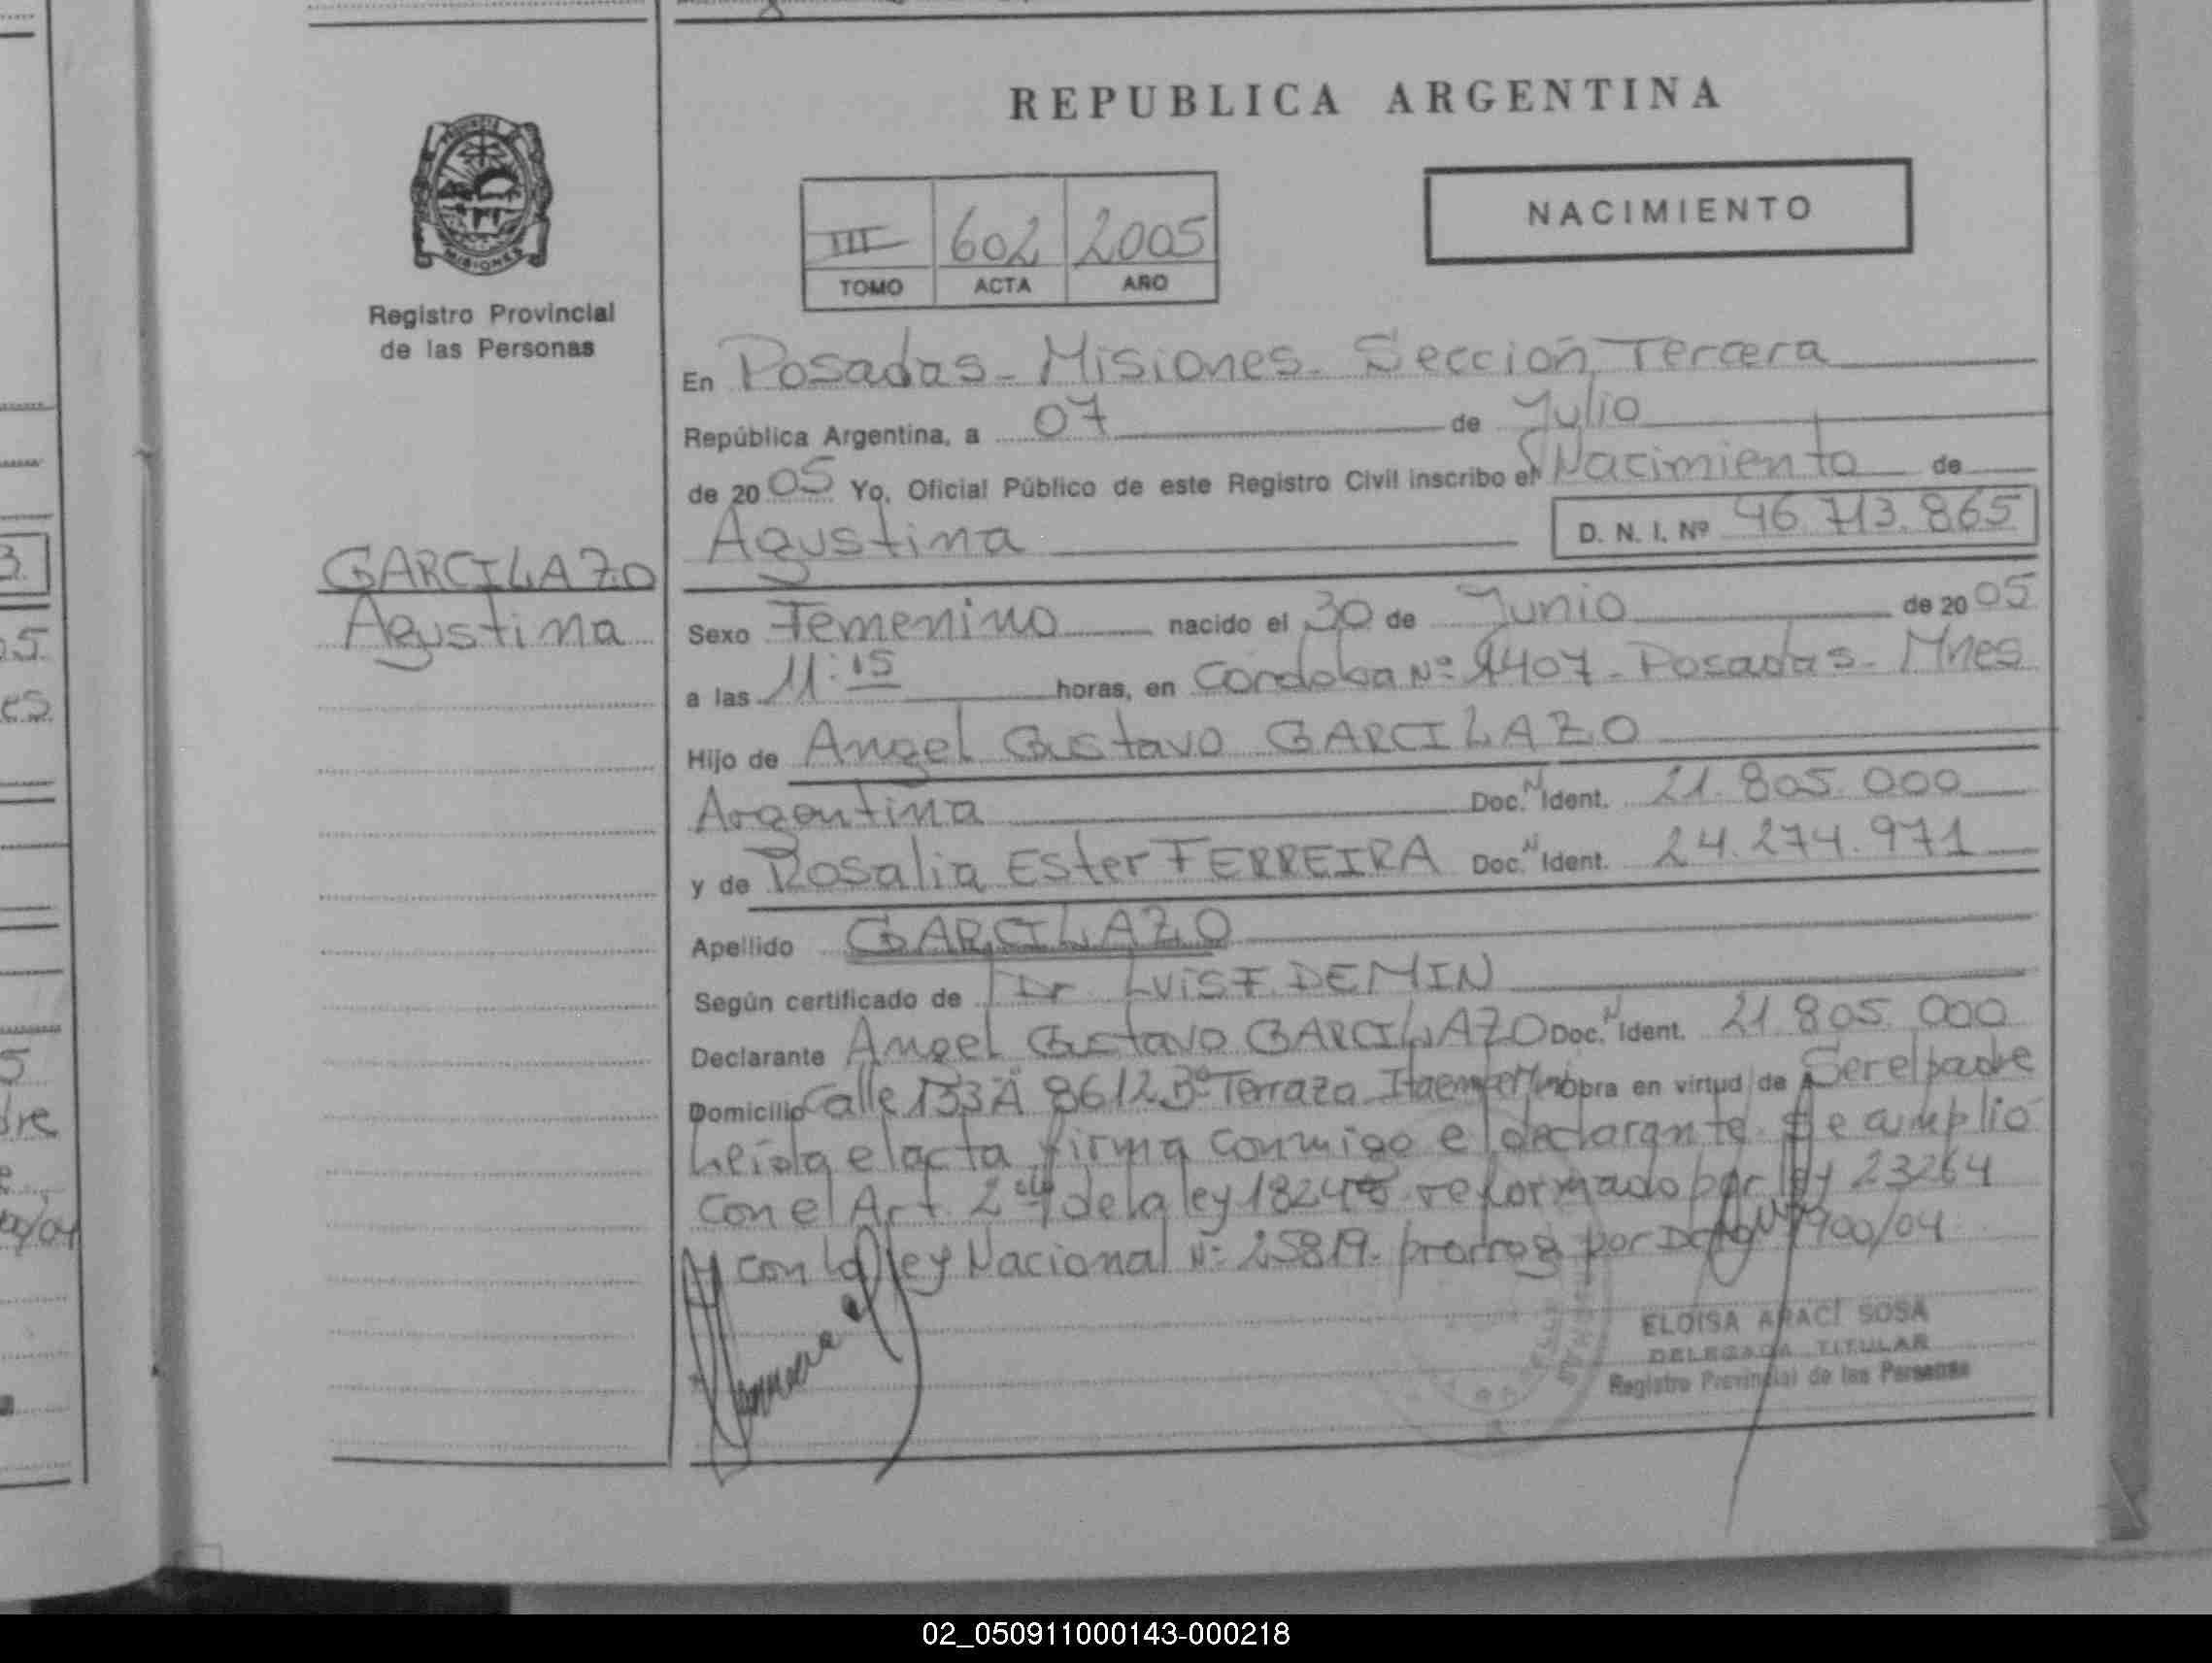 REPUBLICA ARGENTINA
PROVINCIA
MISIONES
Registro Provincial
de las Personas
III 602 2005
TOMO ACTA AÑO
NACIMIENTO
En Posadas - Misiones - Sección Tercera
República Argentina, a 07 de Julio
de 2005 Yo, Oficial Público de este Registro Civil inscribo el Nacimiento de
Agustina D. N. I. Nº 46.713.865
GARCILAZO
Agustina
Sexo Femenino nacido el 30 de Junio de 2005
a las 11:15 horas, en Cordoba Nº 1407 - Posadas - Mnes
Hijo de Angel Gustavo GARCILAZO
Argentina Doc. N Ident. 21.805.000
y de Rosalia Ester FERREIRA Doc. N Ident. 24.274.971
Apellido GARCILAZO
Según certificado de Dr. LUIS F. DEMIN
Declarante Angel Gustavo GARCILAZO Doc. N Ident. 21.805.000
Domicilio Calle 133 A 8612 Bº Terraza obra en virtud de Ser el padre
Leída el acta firma conmigo el declarante. Se amplió
con el Art. 2 de la ley 18248 reformado por ley 23264
y con la ley Nacional Nº 25819 - prorrog por Dcto Nº 1900/04
ELOISA ARACI SOSA
DELEGADA TITULAR
Registro Provincial de las Personas
3.
05.
es.
5
dre
00/04
02_050911000143-000218